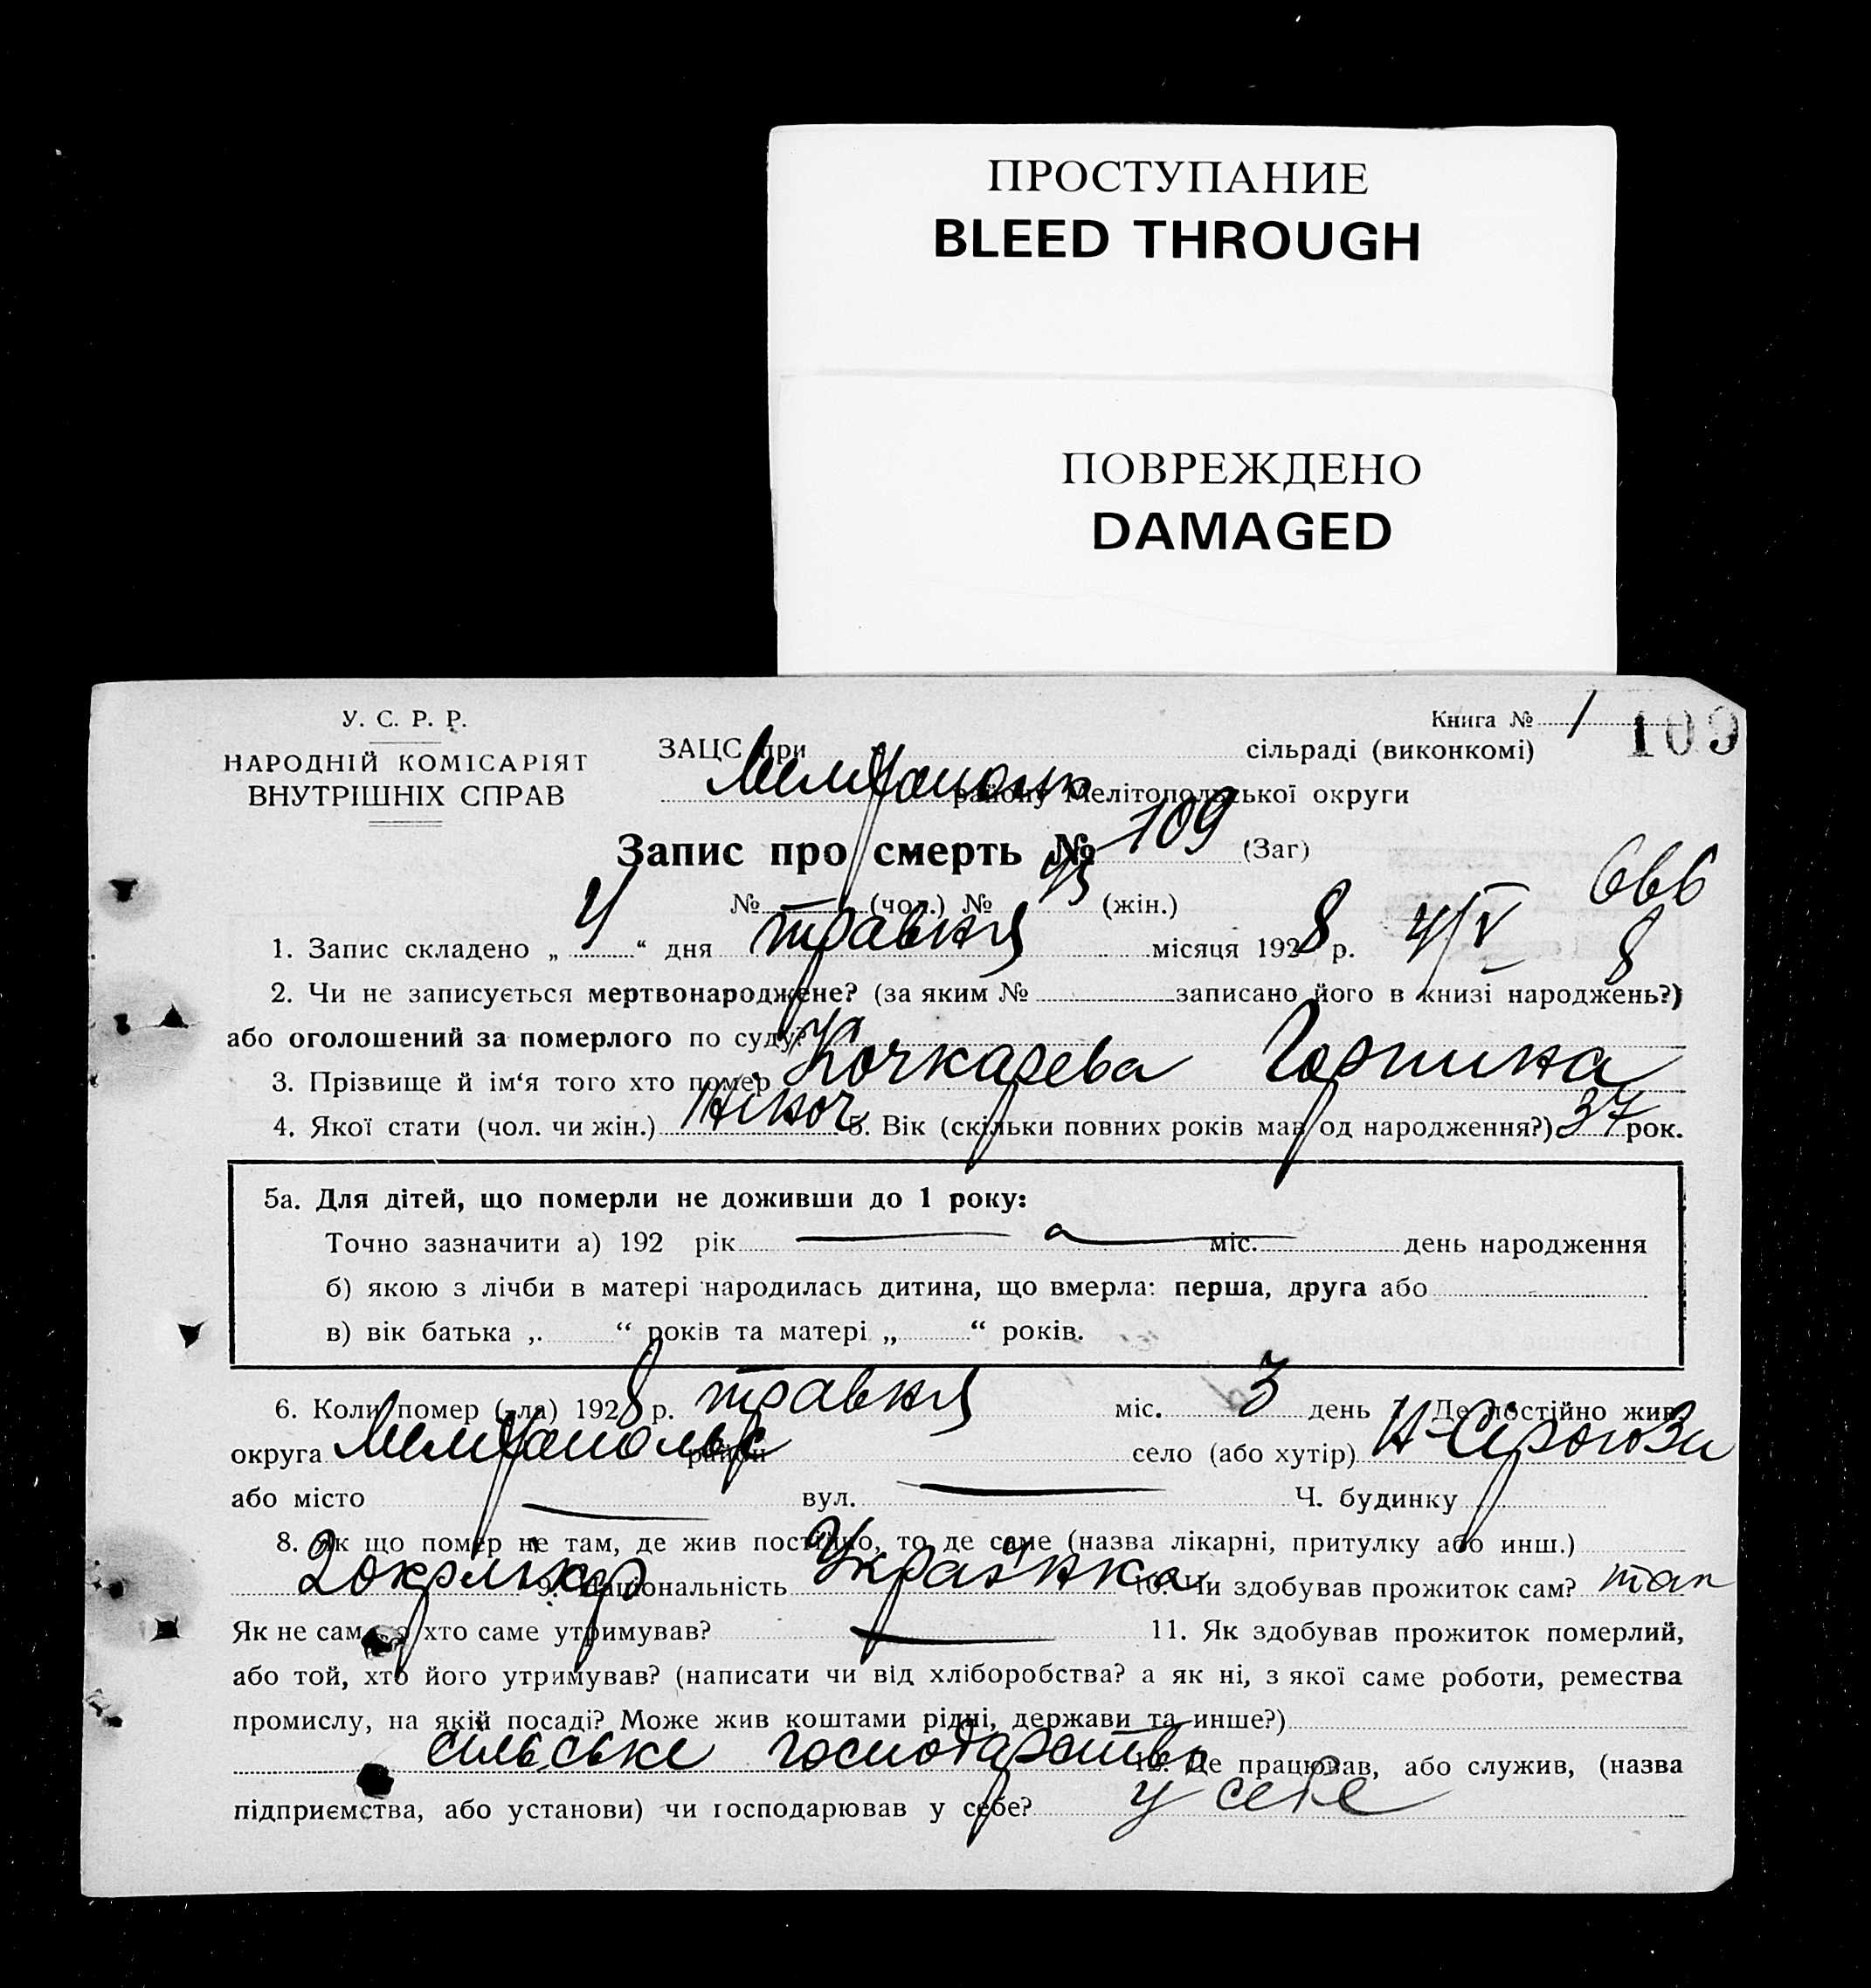 ПРОСТУПАНИЕ
BLEED THROUGH
ПОВРЕЖДЕНО
DAMAGED
У. С. Р. Р.
НАРОДНІЙ КОМІСАРІЯТ
ВНУТРІШНІХ СПРАВ
Книга № 1 109
ЗАЦС при сільраді (виконкомі)
району Мелітопольської округи
Запис про смерть № 109 (Заг)
№ (чол.) № (жін.) 666
1. Запис складено „ 4 “ дня травня місяця 1928 р. 4/V 8
2. Чи не записується мертвонароджене? (за яким № записано його в книзі народжень?)
або оголошений за померлого по суду?
3. Прізвище й ім‘я того хто помер Кочкарева Горпина
4. Якої стати (чол. чи жін.) жіноч 5. Вік (скільки повних років мав од народження?) 37 рок.
5а. Для дітей, що померли не доживши до 1 року:
Точно зазначити а) 192 рік міс. день народження
б) якою з лічби в матері народилась дитина, що вмерла: перша, друга або
в) вік батька „ “ років та матері „ “ років.
6. Коли помер (-ла) 1928 р. травня міс. 3 день 7. Де постійно жив
округа район село (або хутір) Н-Сірогози
або місто вул. Ч. будинку
8. Як що помер не там, де жив постійно, то де саме (назва лікарні, притулку або инш.)
9. Національність Українка 10. Чи здобував прожиток сам? так
Як не сам, то хто саме утримував? 11. Як здобував прожиток померлий,
або той, хто його утримував? (написати чи від хліборобства? а як ні, з якої саме роботи, ремества
промислу, на якій посаді? Може жив коштами рідні, держави та инше?)
сільське господарство 12. Де працював, або служив, (назва
підприємства, або установи) чи господарював у себе? у себе